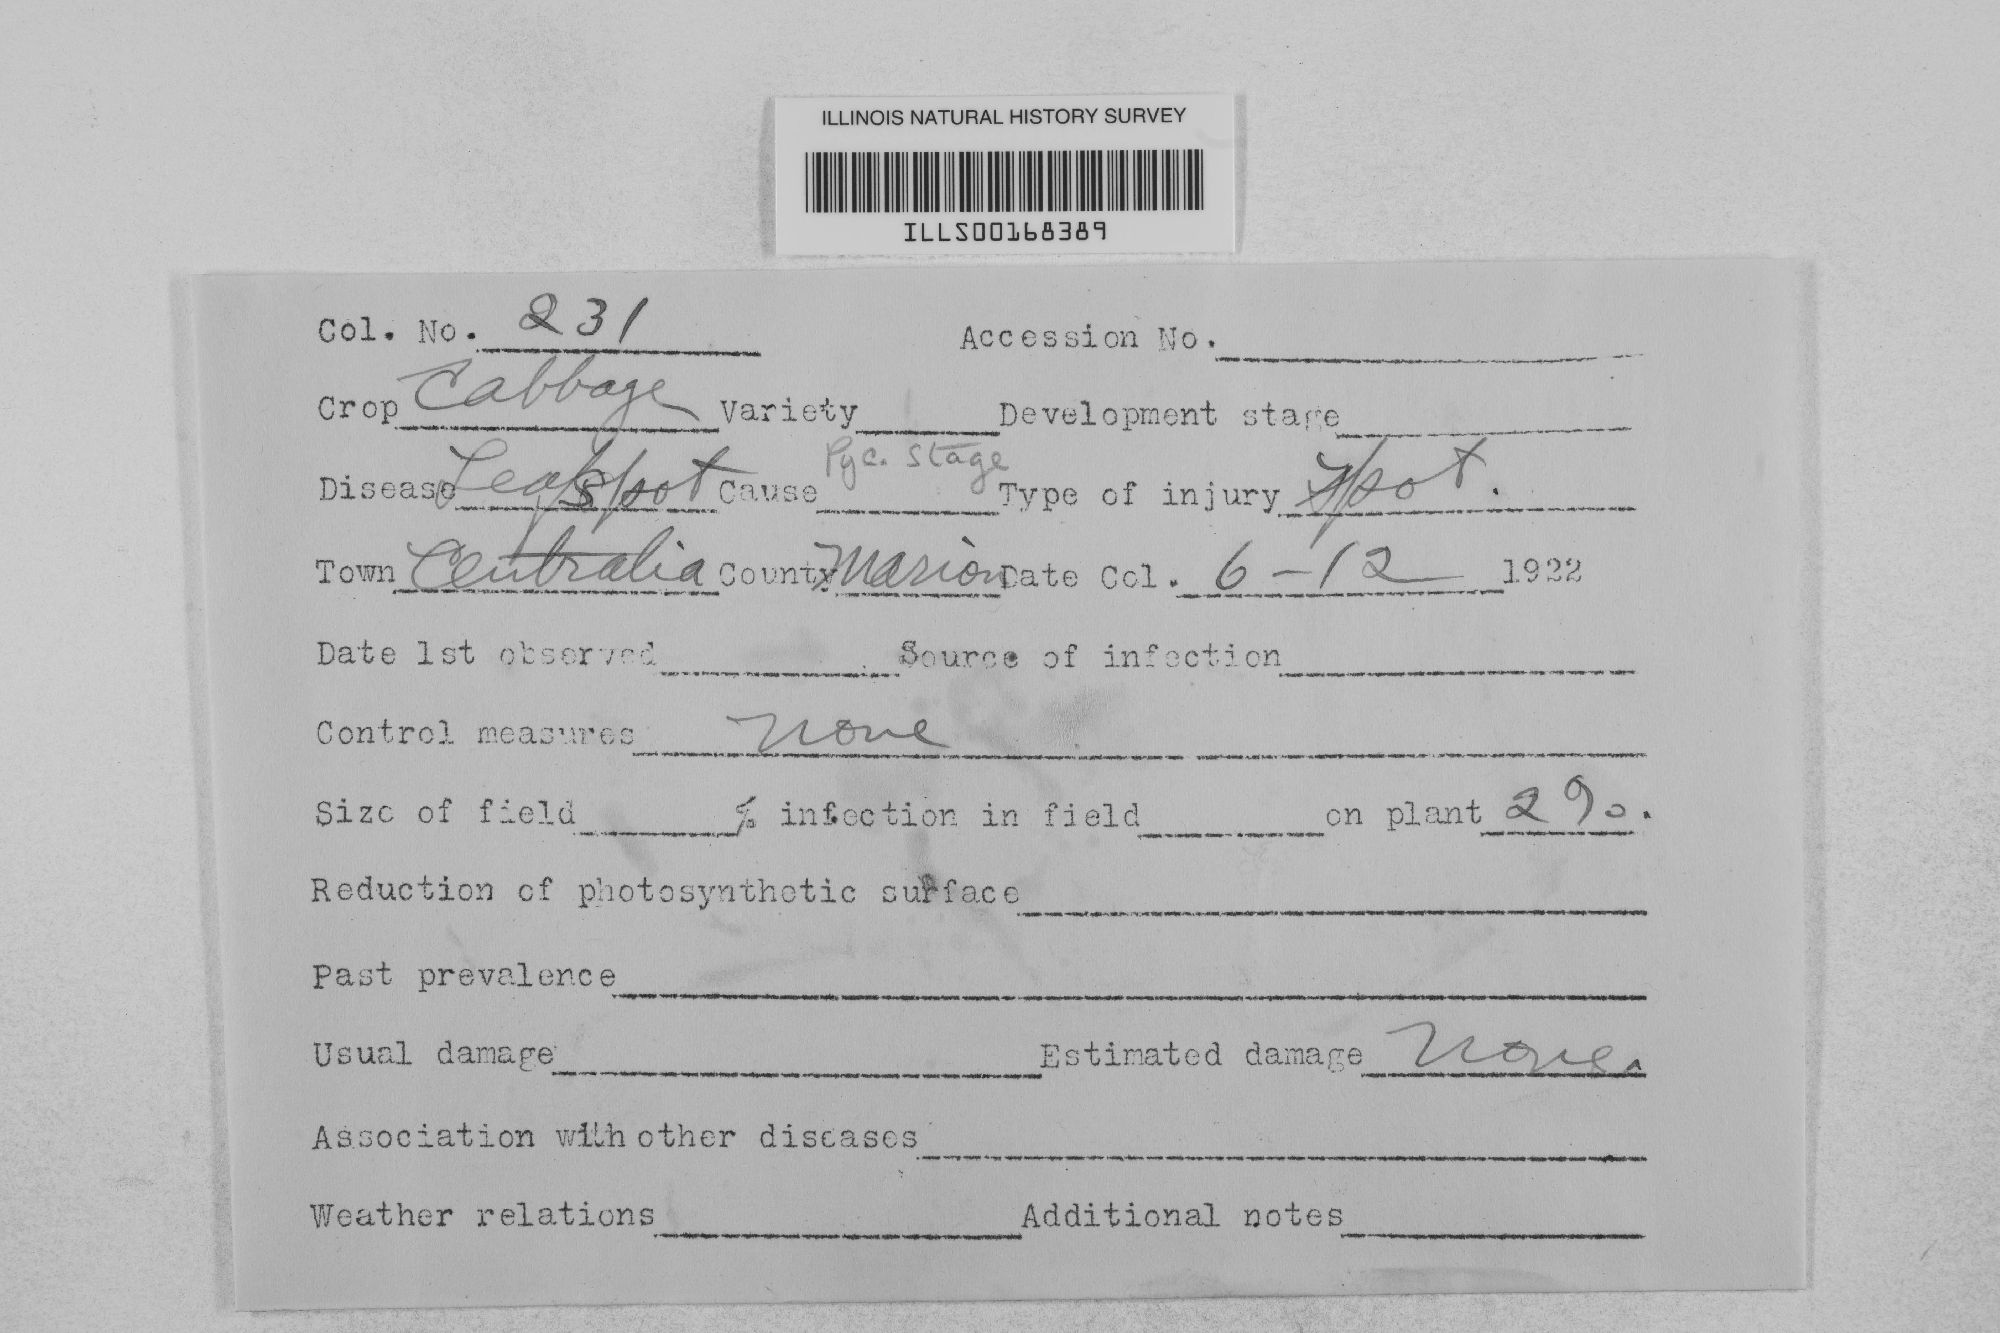 ILLINOIS NATURAL HISTORY SURVEY
ILLS00168389
Col. No. 231 Accession No.
Crop Cabbage Variety Development stage
Disease Leafspot Cause Pyc. Stage Type of injury Spot.
Town Centralia County Marion Date Col. 6-12 1922
Date 1st observed Source of infection
Control measures none
Size of field % infection in field on plant 2%.
Reduction of photosynthetic surface
Past prevalence
Usual damage Estimated damage none.
Association with other diseases
Weather relations Additional notes